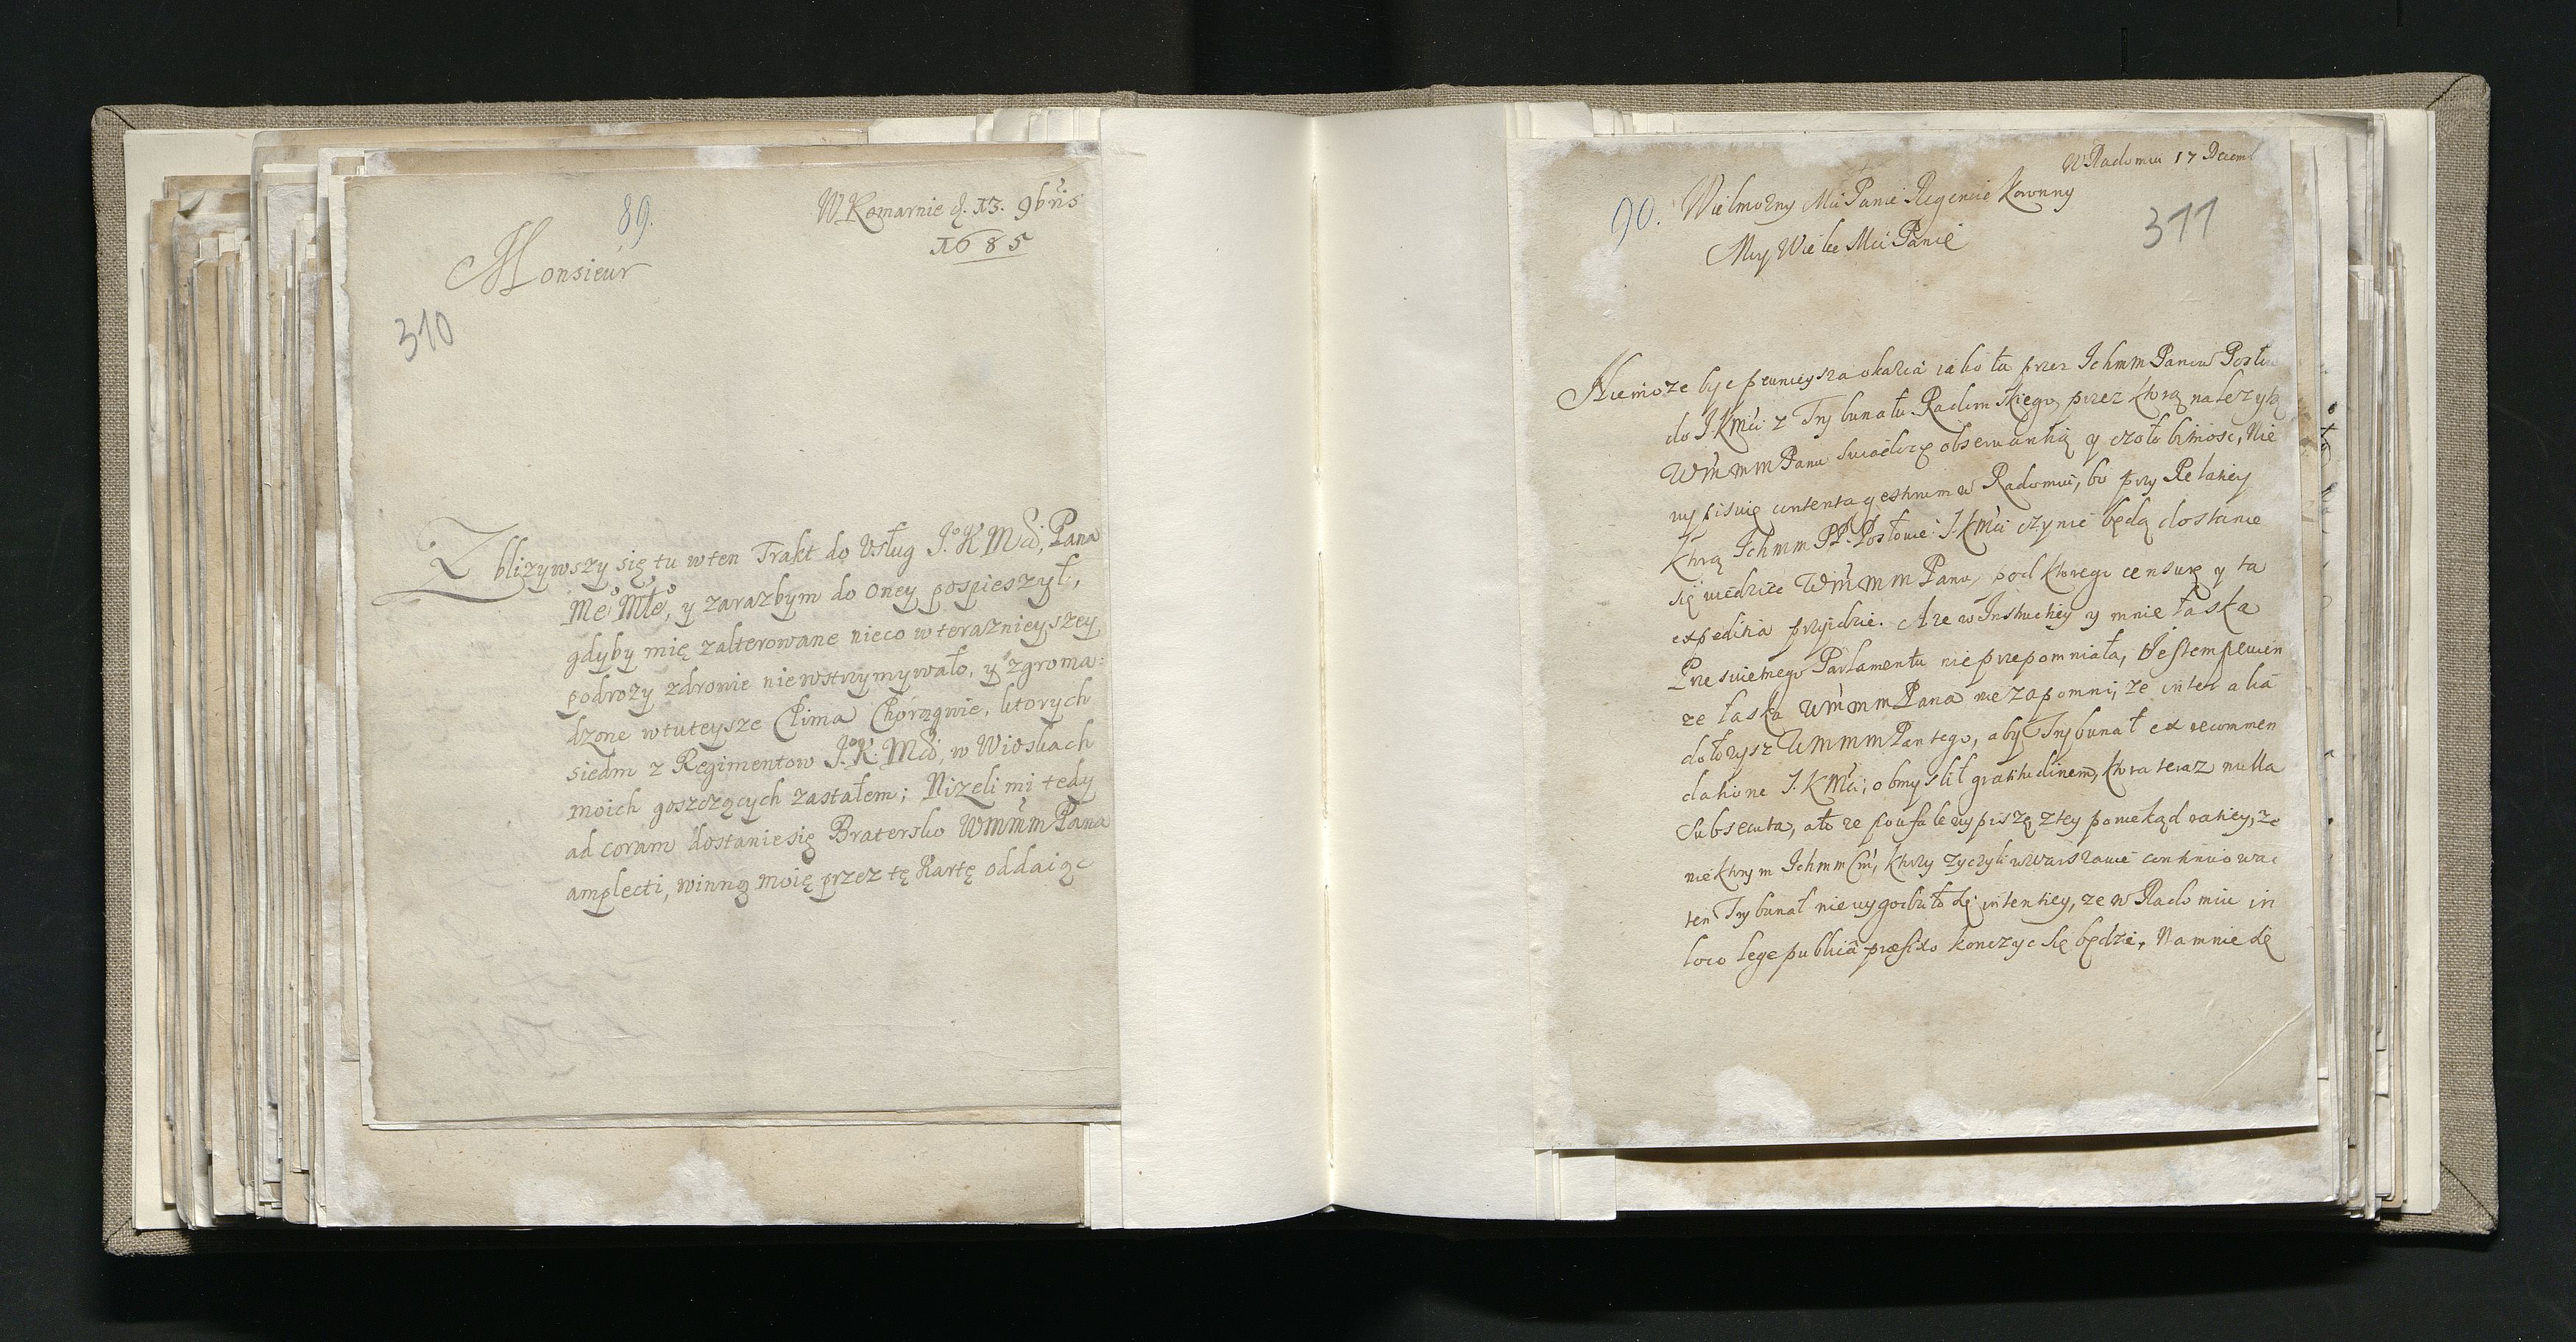 89.
W Komarnie d. 13. 9bris
1685
Monsieur
310
Zblizywszy się tu w ten Trakt do Usług J.º K Mći, Pana
Meº Młeº, y zarazbym do oney pospieszył,
gdyby mię zalterowane nieco w terazniejszey
podrozy zdrowie niewstrzymywało, y zgroma:
dzone w tuteysze Clima Chorągwie, ktorych
siedm z Regimentow J.º K. Mći, w Wioskach
moich goszczących zastałem; Nizeli mi tedy
ad coram dostanie się Bratersko WmmmPana
amplecti, winną moię przez tę Kartę oddaiąc
W Radomiu 17 Decemb
90. Wielmozny Mci Panie Regencie Koronny
Moy Wielce Mci Panie
311
Niemoze byc pewnieysza okazia iako ta przez Ichmm Panow Posłow
do J. Kmći z Trybunału Radomskiego, przez ktorą nalezytą
Wmmm Panu swiadczę obserwantią y czołobitnosc, Nie
wypisuię contenta gestorum w Radomiu, bo przy Relatiey
ktorą Ichmm PP. Posłowie J. Kmći czynić będą dostanie
się wiedziec Wmmm Panu, pod ktorego censurę y ta
expeditia przyidzie. A ze w Instructiey y mnie łaska
Przeswietnego Parlamentu nie przepomniała, Jestem pewien
ze łaska WmmmPana nie zapomni, ze inter alia
dołozysz WmmmPan tego, aby Trybunał ex recommen
datione J. Kmći, obmyslił gratitudinem, ktora teraz nulla
subsecuta, a to ze poufale wypiszę z tey poniekąd ratiey, ze
niektorym Ichmm Cm, ktorzy zyczyli w Warszawie continuowac
ten Trybunał nie wygodziło się intentiey, ze w Radomiu in
loco lege publica præfixo konczyc się będzie, Na mnie się